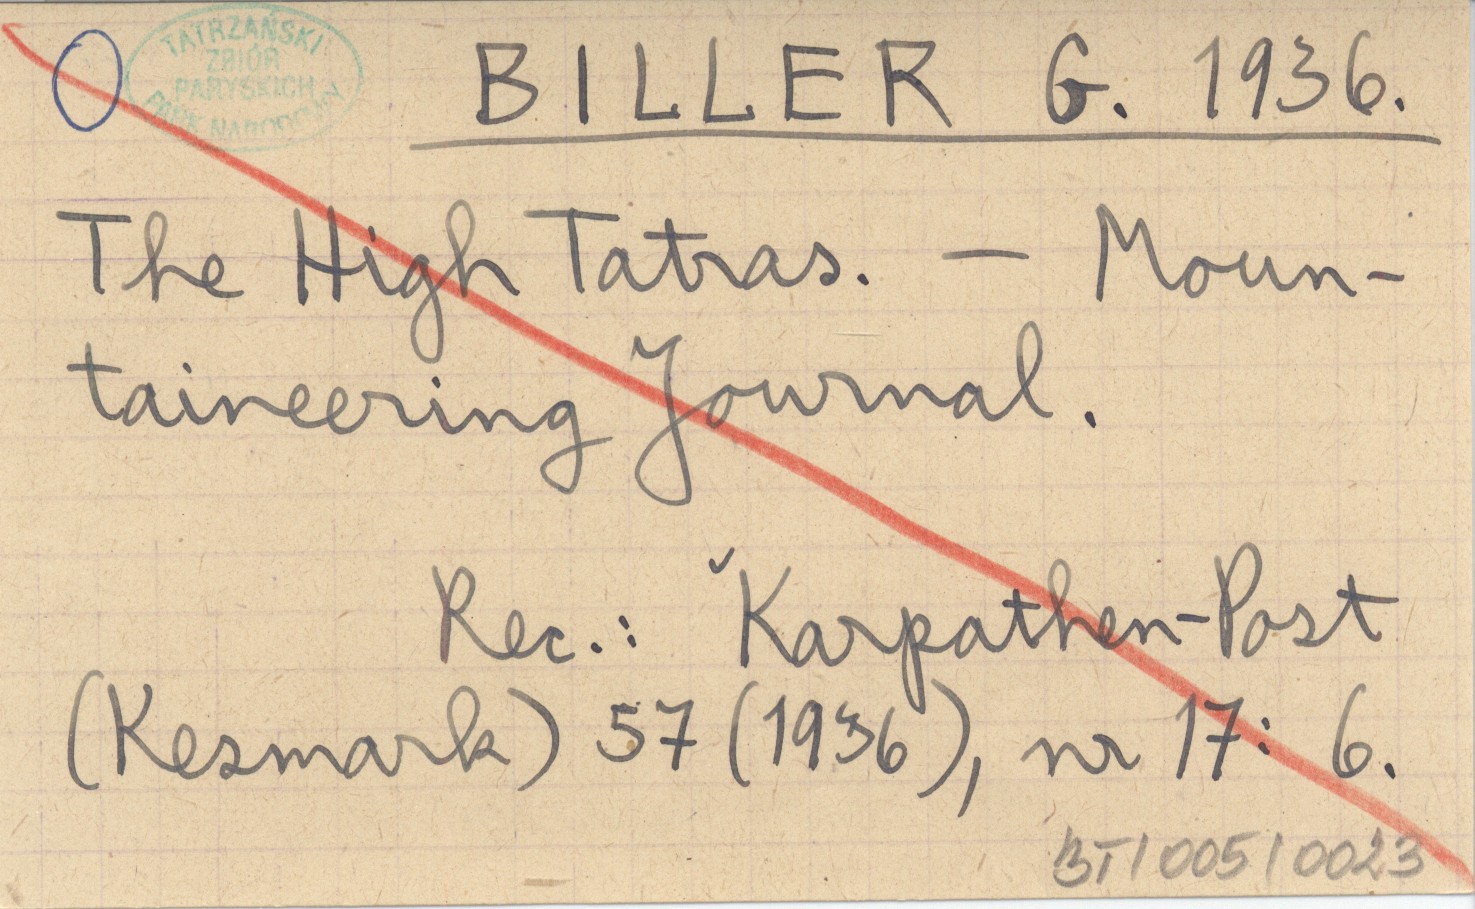 TATRZAŃSKI
ZBIÓR
PARYSKICH
PARK NARODOWY
BILLER G. 1936.
The High Tatras. — Moun-
taineering Journal.
Rec.: Karpathen-Post
(Kesmark) 57 (1936), nr 17: 6.
BT/005/0023